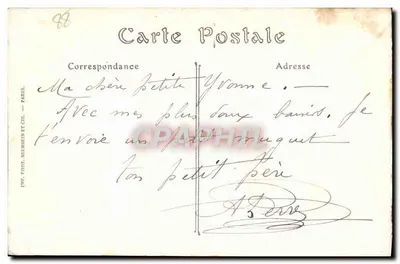 88
Carte Postale
Correspondance
Adresse
Ma chère petite Yvonne. —
Avec mes plus doux baisers. Je
t'envoie un petit muguet
ton petit père
A Perre
CPAPHIL
IMP. PHOT. NEURDEIN ET CIE. - PARIS.